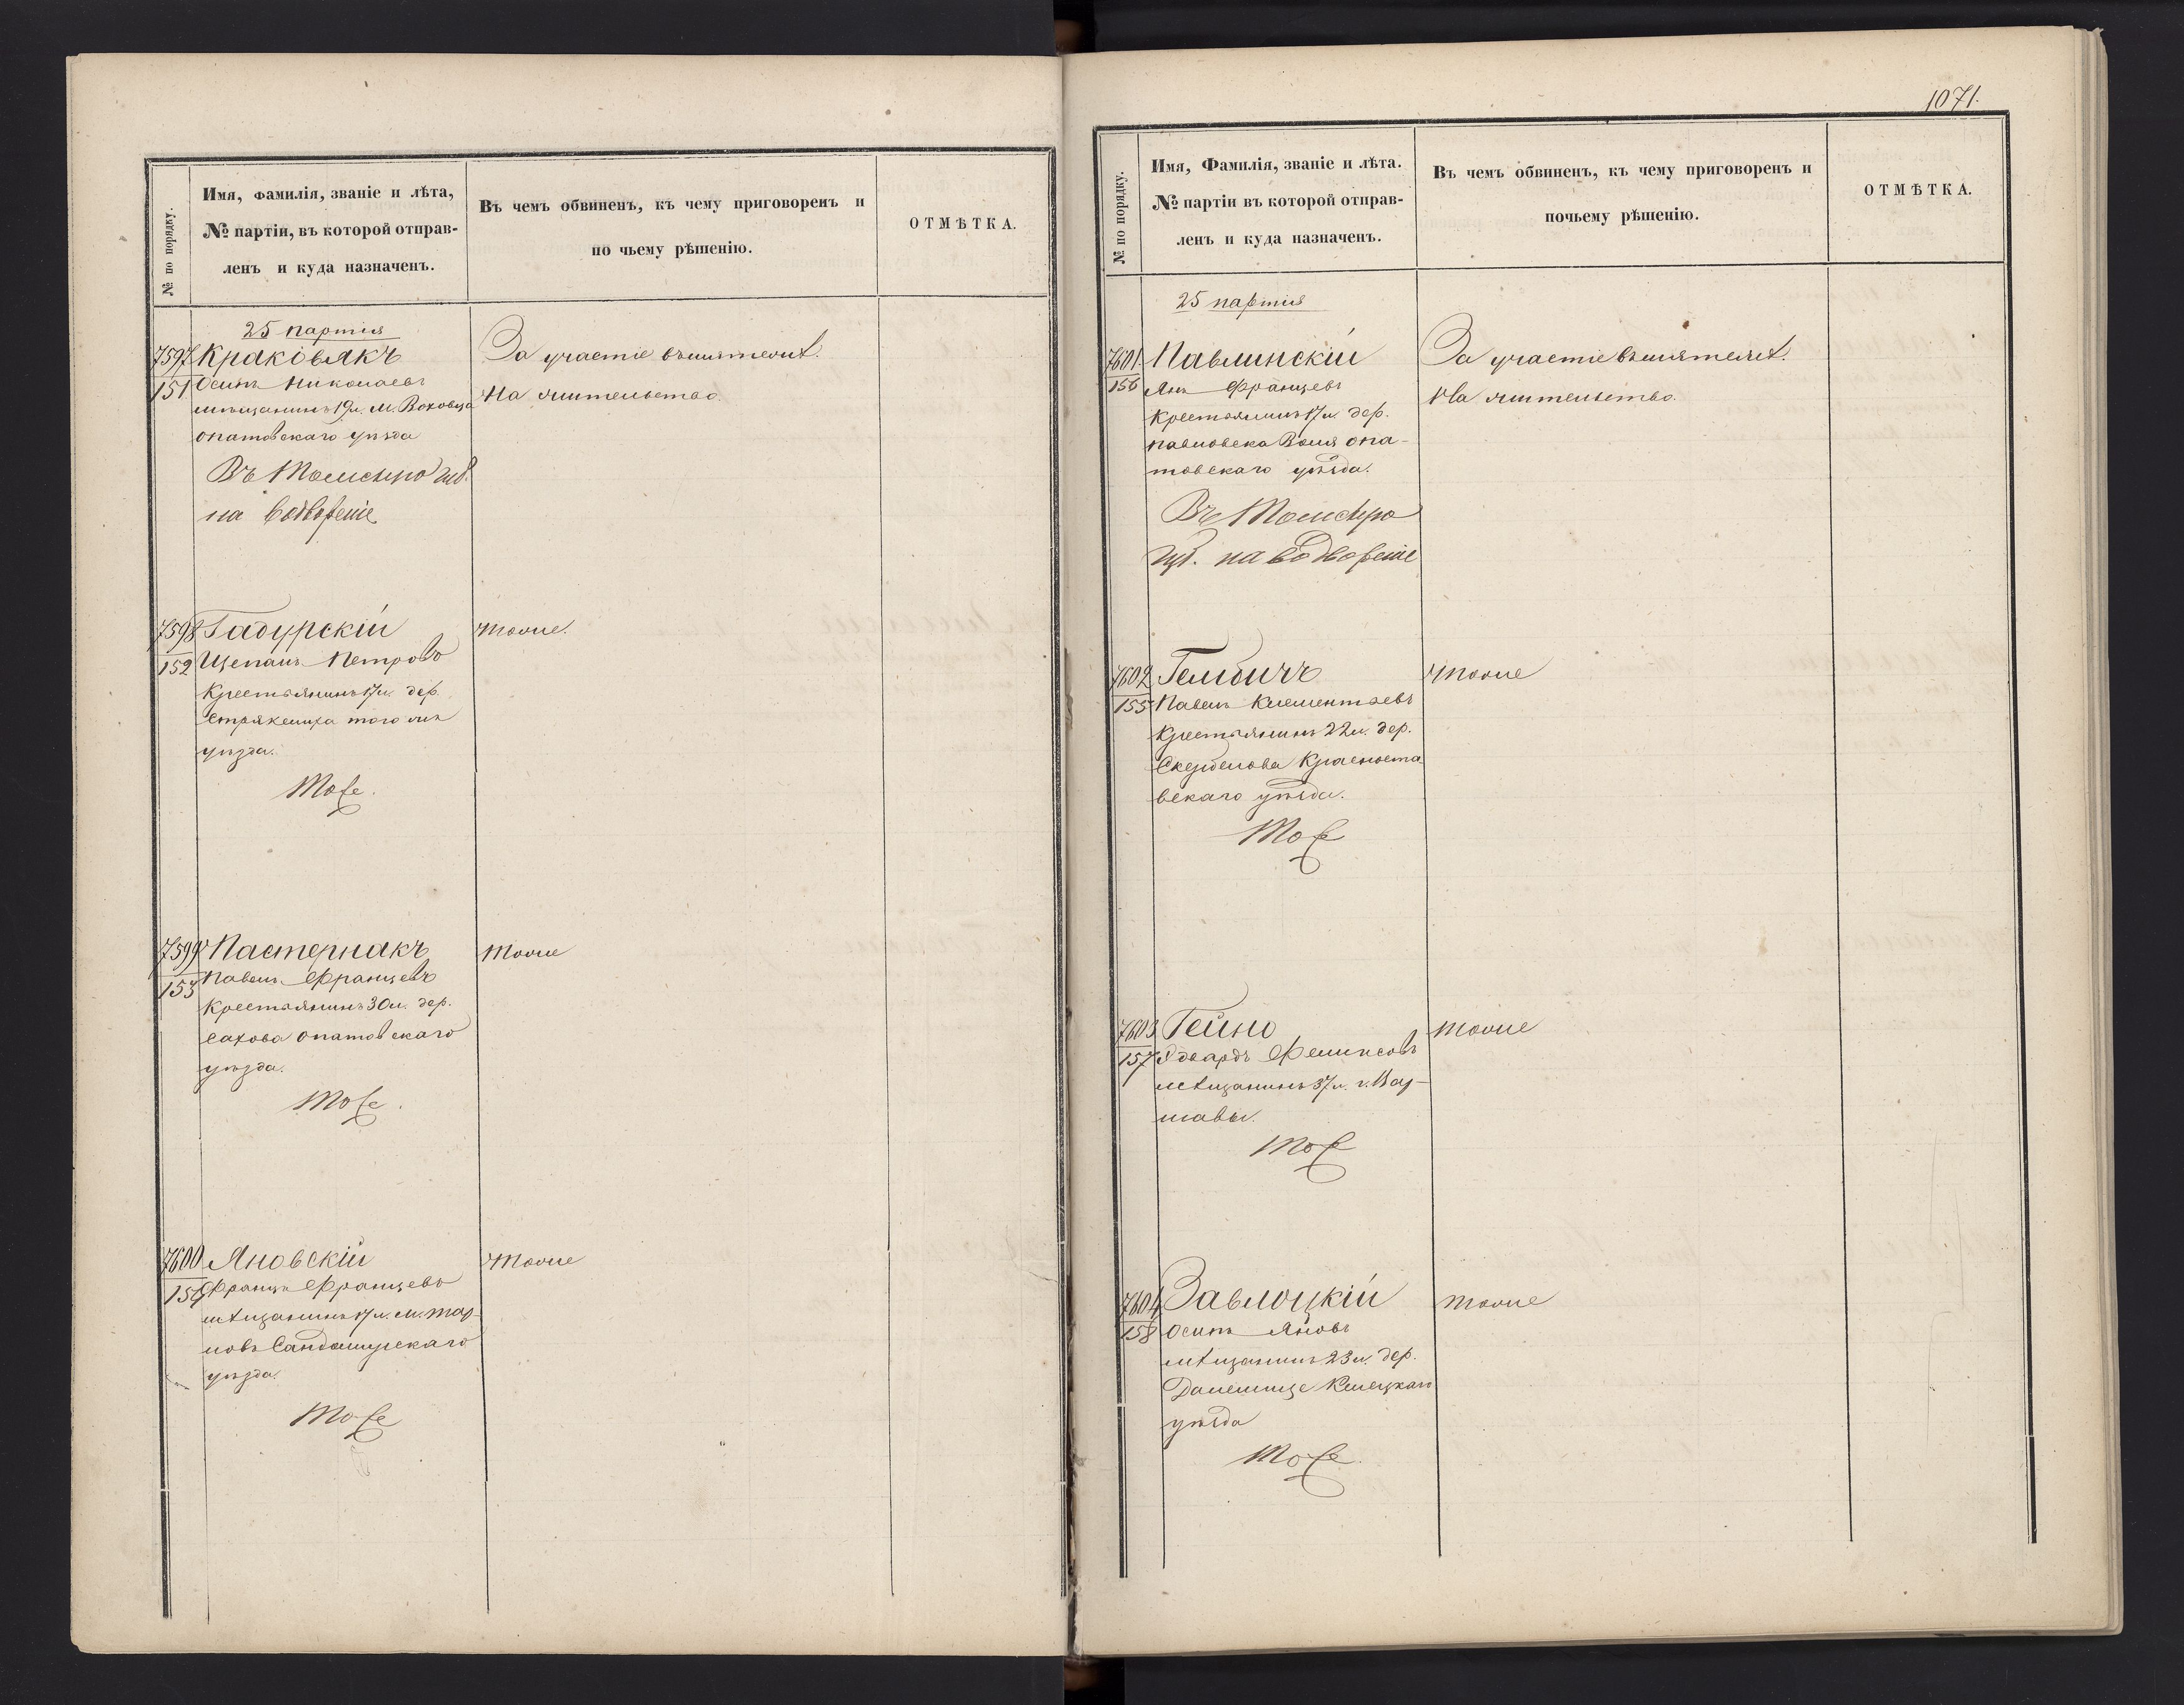 № по порядку.
Имя, фамилія, званіе и лѣта,
№ партіи, въ которой отправ-
ленъ и куда назначенъ.
Въ чемъ обвиненъ, къ чему приговоренъ и
по чьему рѣшенію.
ОТМѢТКА.
25 партія
7597 Краковякъ
151 Осипъ Николаевъ
мѣщанинъ 19 л. м.
опатовскаго уѣзда
Въ Томскую губ.
на водвореніе
За участіе въ мятежѣ.
На жительство.
7598 Гадурскій
152 Щепанъ Петровъ
Крестьянинъ 17 л. дер.
того жъ
уѣзда.
Тоже.
тоже.
7599 Пастернакъ
153 Павелъ Францевъ
Крестьянинъ 30 л. дер.
Сахова опатовскаго
уѣзда.
Тоже.
тоже
7600 Яновскій
154 Францъ Францевъ
мѣщанинъ 17 л. м. Тар-
новъ Сандомирскаго
уѣзда.
Тоже
тоже
1071.
№ по порядку.
Имя, Фамилія, званіе и лѣта.
№ партіи въ которой отправ-
ленъ и куда назначенъ.
Въ чемъ обвиненъ, къ чему приговоренъ и
почьему рѣшенію.
ОТМѢТКА.
25 партія
7601. Павлинскій
156 Янъ Францевъ
Крестьянинъ 17 л. дер.
Павловска Воля опа-
товскаго уѣзда.
Въ Томскую
губ. на водвореніе
За участіе въ мятежѣ.
На жительство.
7602 Гембичъ
155 Павелъ Клементьевъ
Крестьянинъ 22 л. дер.
Красноста
вскаго уѣзда.
Тоже
тоже
7603 Гейно
157 Эдвардъ Феликсовъ
мѣщанинъ 37 л. г. Вар-
шавы.
Тоже
тоже
7604 Завлоцкій
158 Осипъ Яновъ
мѣщанинъ 23 л. дер.
Далешице Кѣлецкаго
уѣзда
Тоже.
тоже